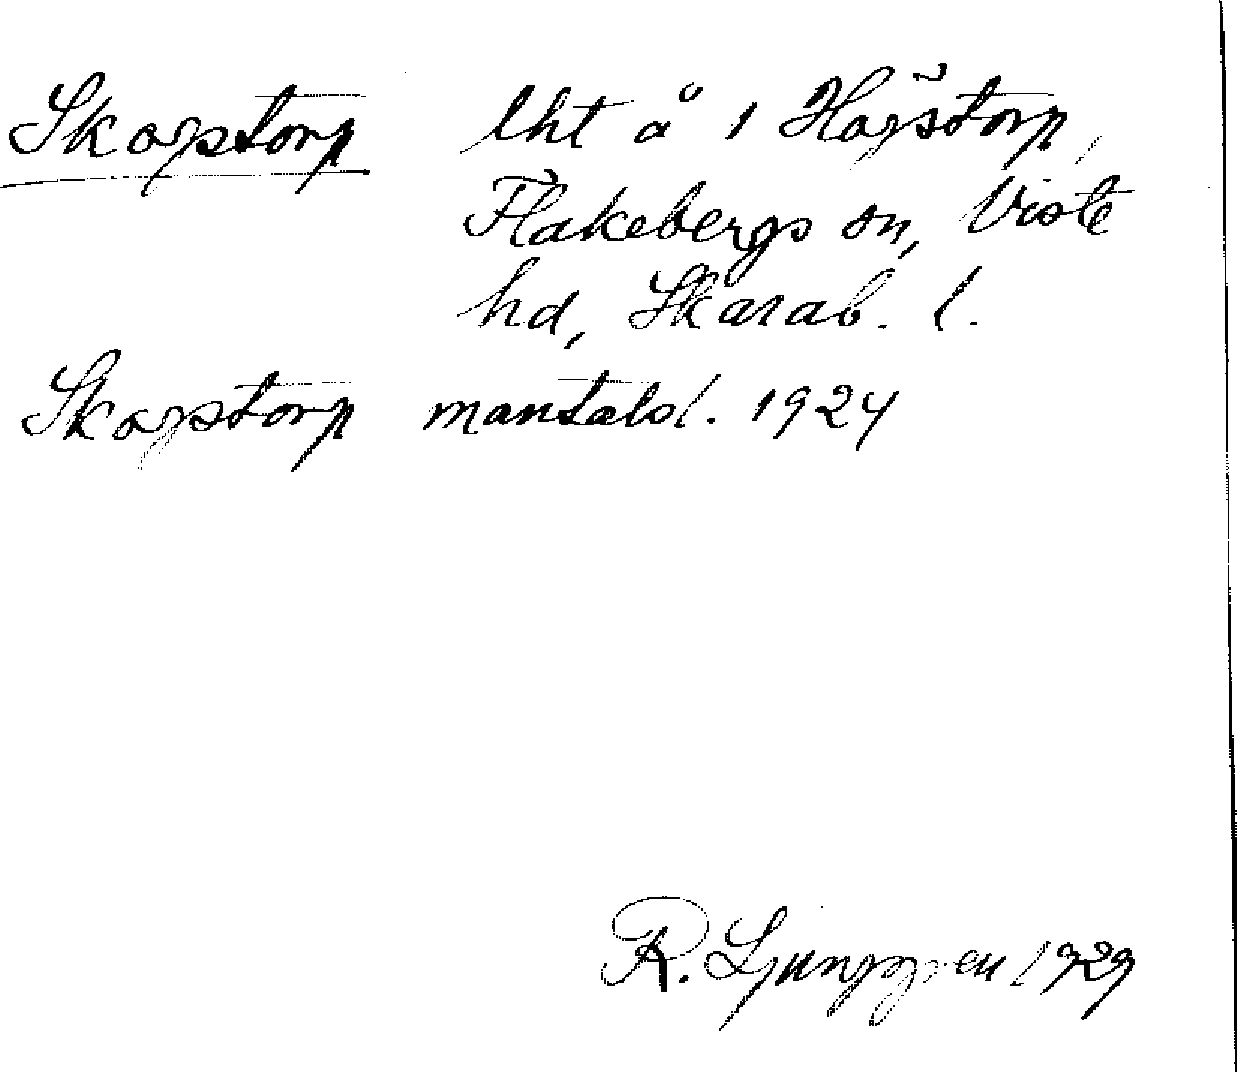 Skogstorp lht å 1 Hägstorp,
Flakebergs sn, Viste
hd, Skarab. l.
Skogstorp mantalsl. 1924
R. Ljunggren 1929